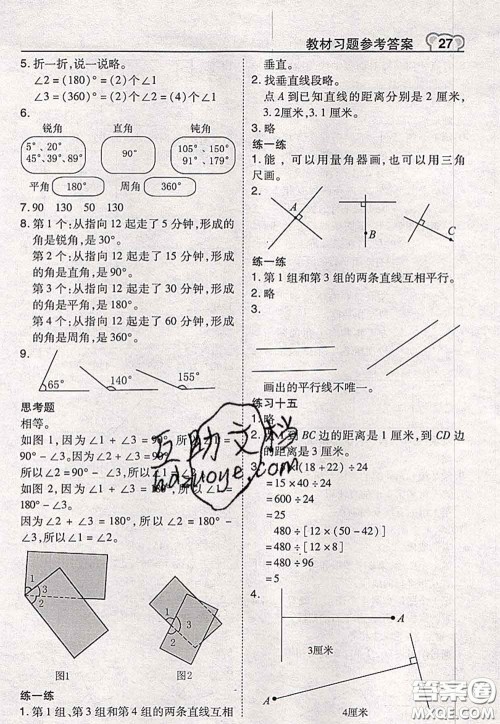 教材习题参考答案 27
5. 折一折，说一说略。
∠2 = (180)° = (2) 个∠1
∠3 = (360)° = (2) 个∠1
6.
锐角 直角 钝角
20°、5°
45°、39°、89°
90°
105°、150°
91°、179°
平角 180° 周角 360°
7. 90 130 50 130
8. 第 1 个：从指向 12 起走了 5 分钟，形成
的角是锐角，是 30°。
第 2 个：从指向 12 起走了 15 分钟，形成
的角是直角，是 90°。
第 3 个：从指向 12 起走了 30 分钟，形成
的角是平角，是 180°。
第 4 个：从指向 12 起走了 60 分钟，形成
的角是周角，是 360°。
9.
65° 140° 155°
思考题
相等。
如图 1，因为∠1 + ∠3 = 90°，所以∠1 =
90° - ∠3
所以∠1 = ∠2
如图 2，因为∠1 + ∠3 = 180°，所以∠1 =
180° - ∠3。
因为∠2 + ∠3 = 180°，所以∠2 = 180° -
∠3，所以∠1 = ∠2
1 3 2
1 3 2
图1 图2
练一练
1. 第 1 组、第 3 组和第 4 组的两条直线互相
垂直。
2. 找垂直线段略。
点 A 到已知直线的距离分别是 2 厘米，
3.2厘米，3.1 厘米。
3. 略
练一练
1. 能，可以用量角器画，也可以用三角
尺画。
2.
A B C
练一练
1. 第 1 组和第 3 组的两条直线互相平行。
2. 略
3.
画出的平行线不唯一。
练习十五
1. 略
2. 到 BC 边的距离是 1 厘米，到 CD 边
的距离是 3 厘米。
(18 + 22) ÷ 24
= 15 × 40 ÷ 24
= 600 ÷ 24
= 25
480 ÷ [12 × (50 - 42)]
= 480 ÷ [12 × 8]
= 480 ÷ 96
= 5
4.
A
3厘米
A
4厘米
互助文档
hdzuoye.com
答案圈
MXQE.COM